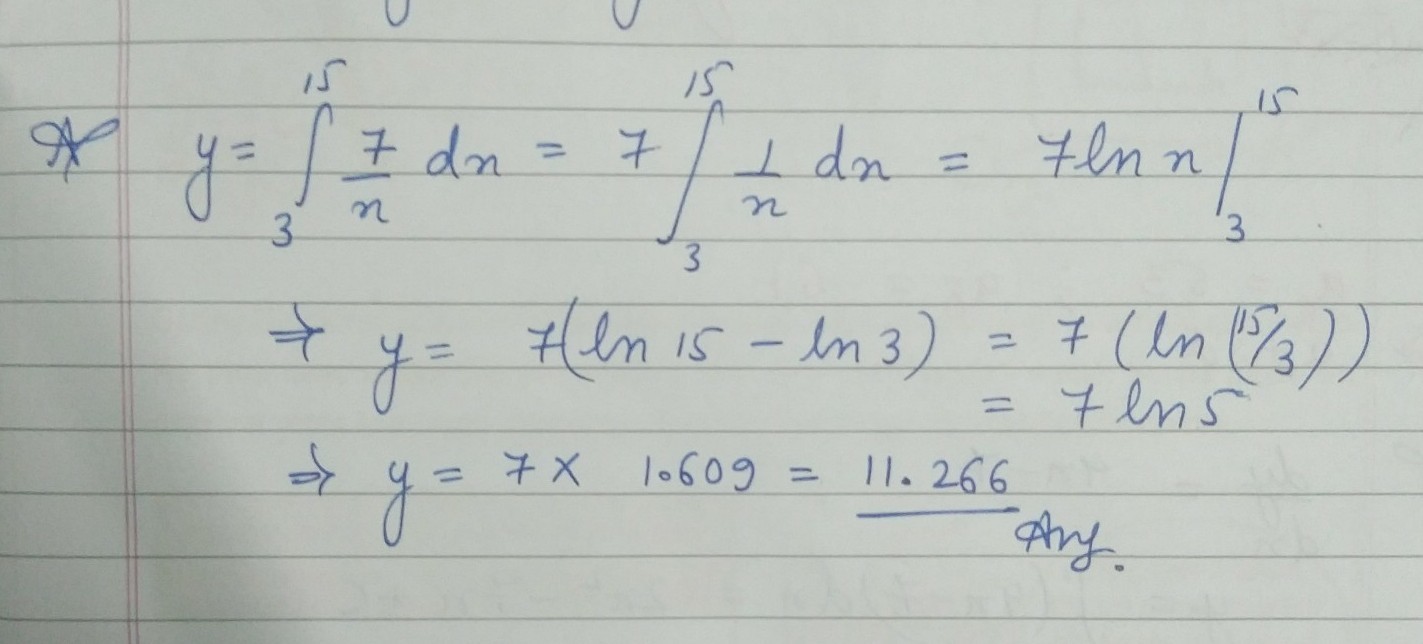 y = ∫₃¹⁵ 7/x dx = 7 ∫₃¹⁵ 1/x dx = 7 ln x |₃¹⁵
⇒ y = 7(ln 15 − ln 3) = 7 (ln (15/3))
= 7 ln 5
⇒ y = 7 × 1.609 = 11.266
Ans.